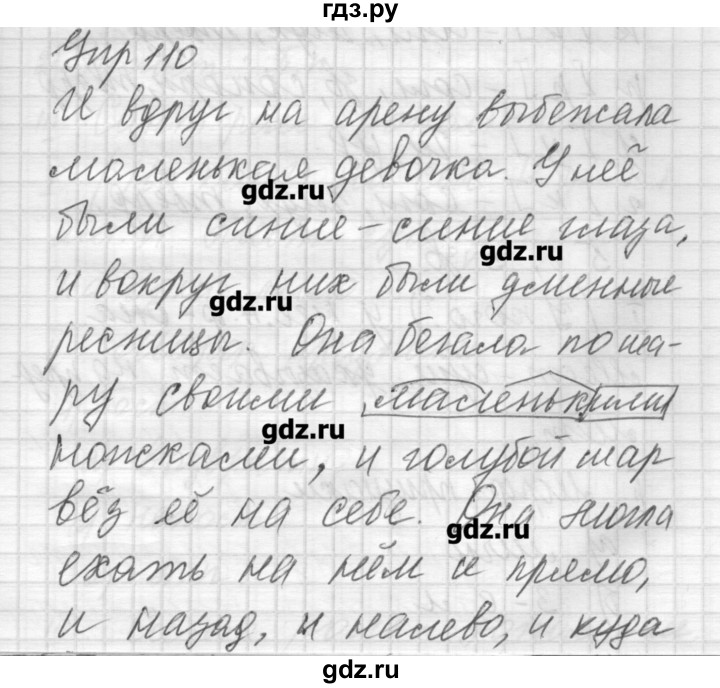 гдз.ру
Упр 110
И вдруг на арену выбежала
маленькая девочка. У неё
gdz.ru
были синие-синие глаза,
gdz.ru
и вокруг них были длинные
gdz.ru
ресницы. Она бегала по ша-
ру своими маленькими
gdz.ru
ножками, и голубой шар
вёз её на себе. Она могла
gdz.ru
ехать на нём и прямо,
и назад, и налево, и куда
gdz.ru